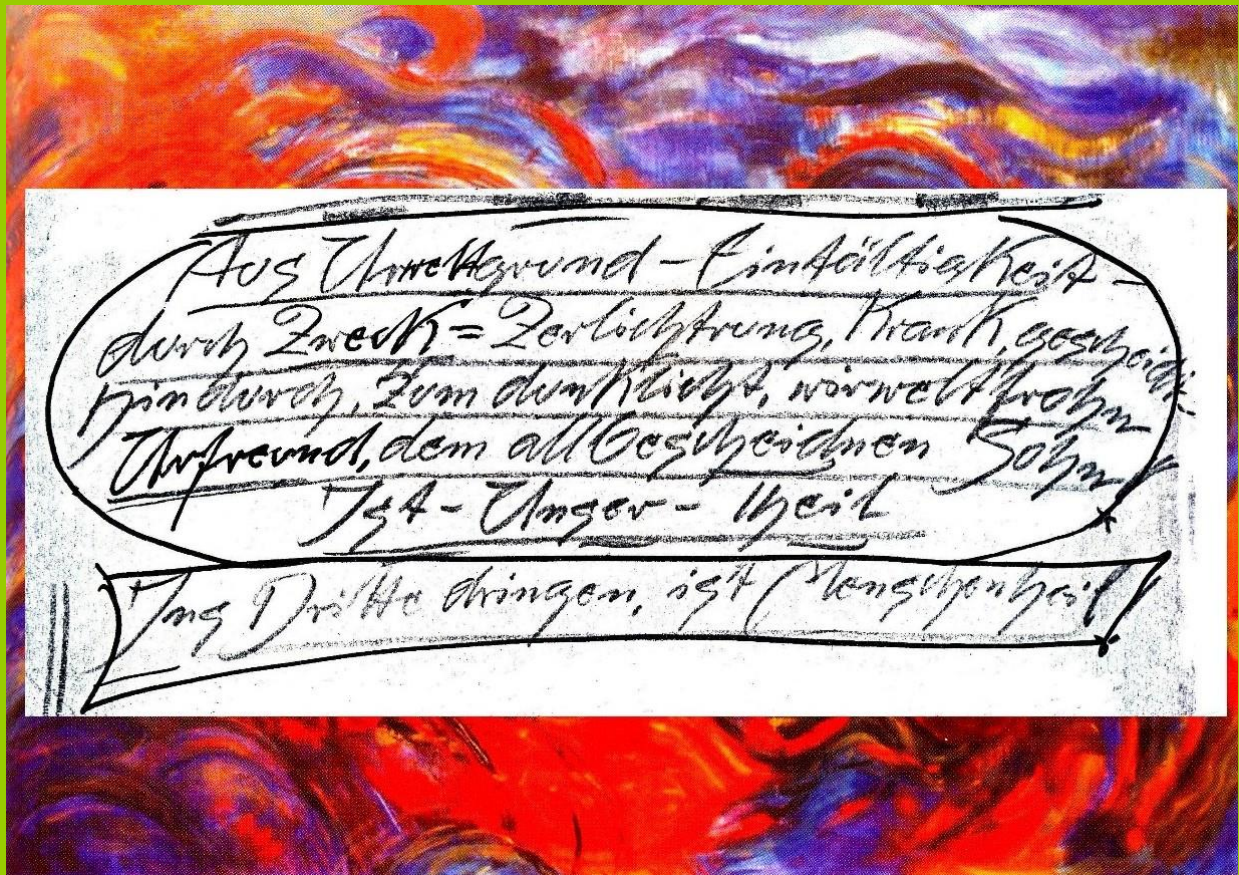 Aus Urweltgrund - Einfältigkeit -
durch Zweck = Zerlichtrung, Krank, gescheidt
hindurch, zum dunklicht, wirwelt frohn
Urfreund, dem all Gescheidnen Sohn
Ist - Unser - theil
Ins Dritte dringen, ist Menschenheil